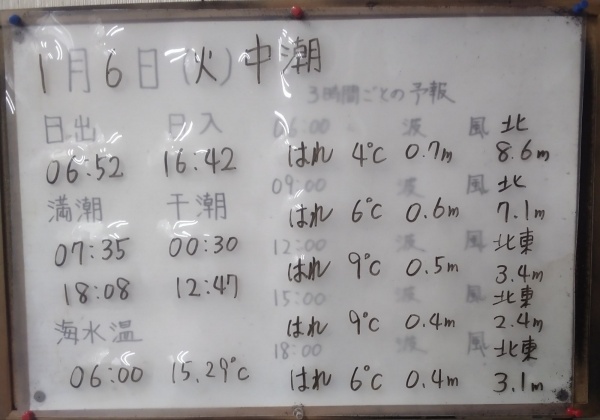 1月6日(火)中潮
3時間ごとの予報
日出 日入
06:52 16:42
満潮 干潮
07:35 00:30
18:08 12:47
海水温
06:00 15.29℃
06:00 波 風 北
はれ 4℃ 0.7m 8.6m
09:00 波 風 北
はれ 6℃ 0.6m 7.1m
12:00 波 風 北東
はれ 9℃ 0.5m 3.4m
15:00 波 風 北東
はれ 9℃ 0.4m 2.4m
18:00 波 風 北東
はれ 6℃ 0.4m 3.1m